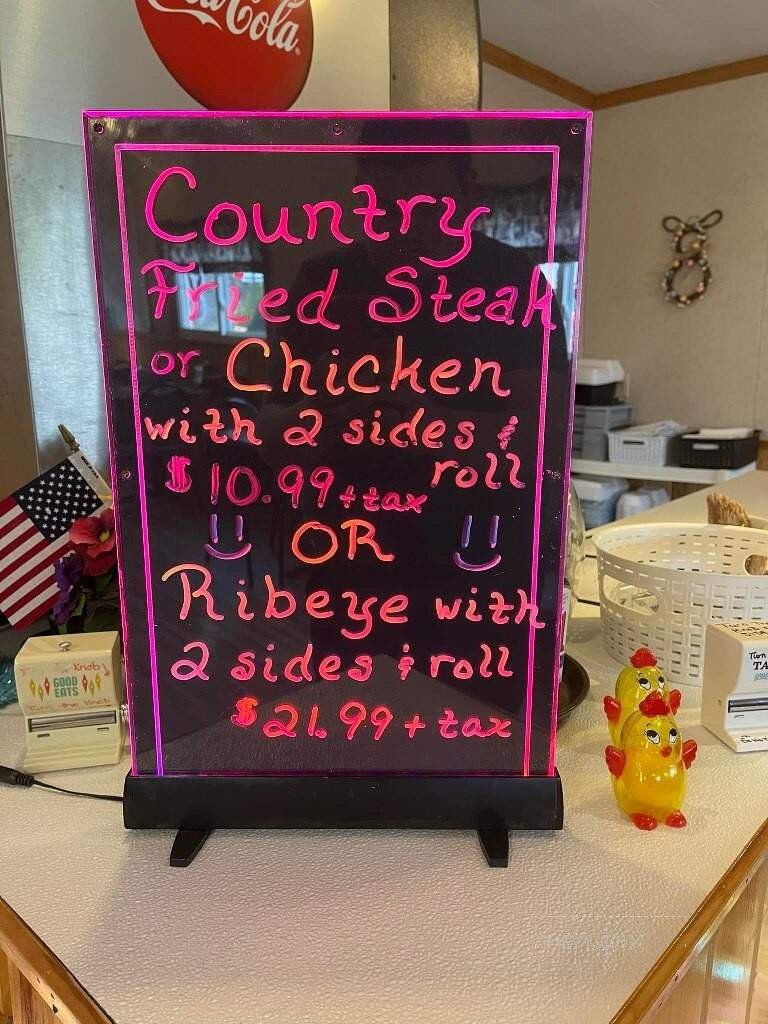 Coca-Cola
Country
Fried Steak
or Chicken
with 2 sides &
$10.99 + tax roll
OR
Ribeye with
2 sides & roll
$21.99 + tax
Knob
GOOD
EATS
Turn the Knob
Turn
TA